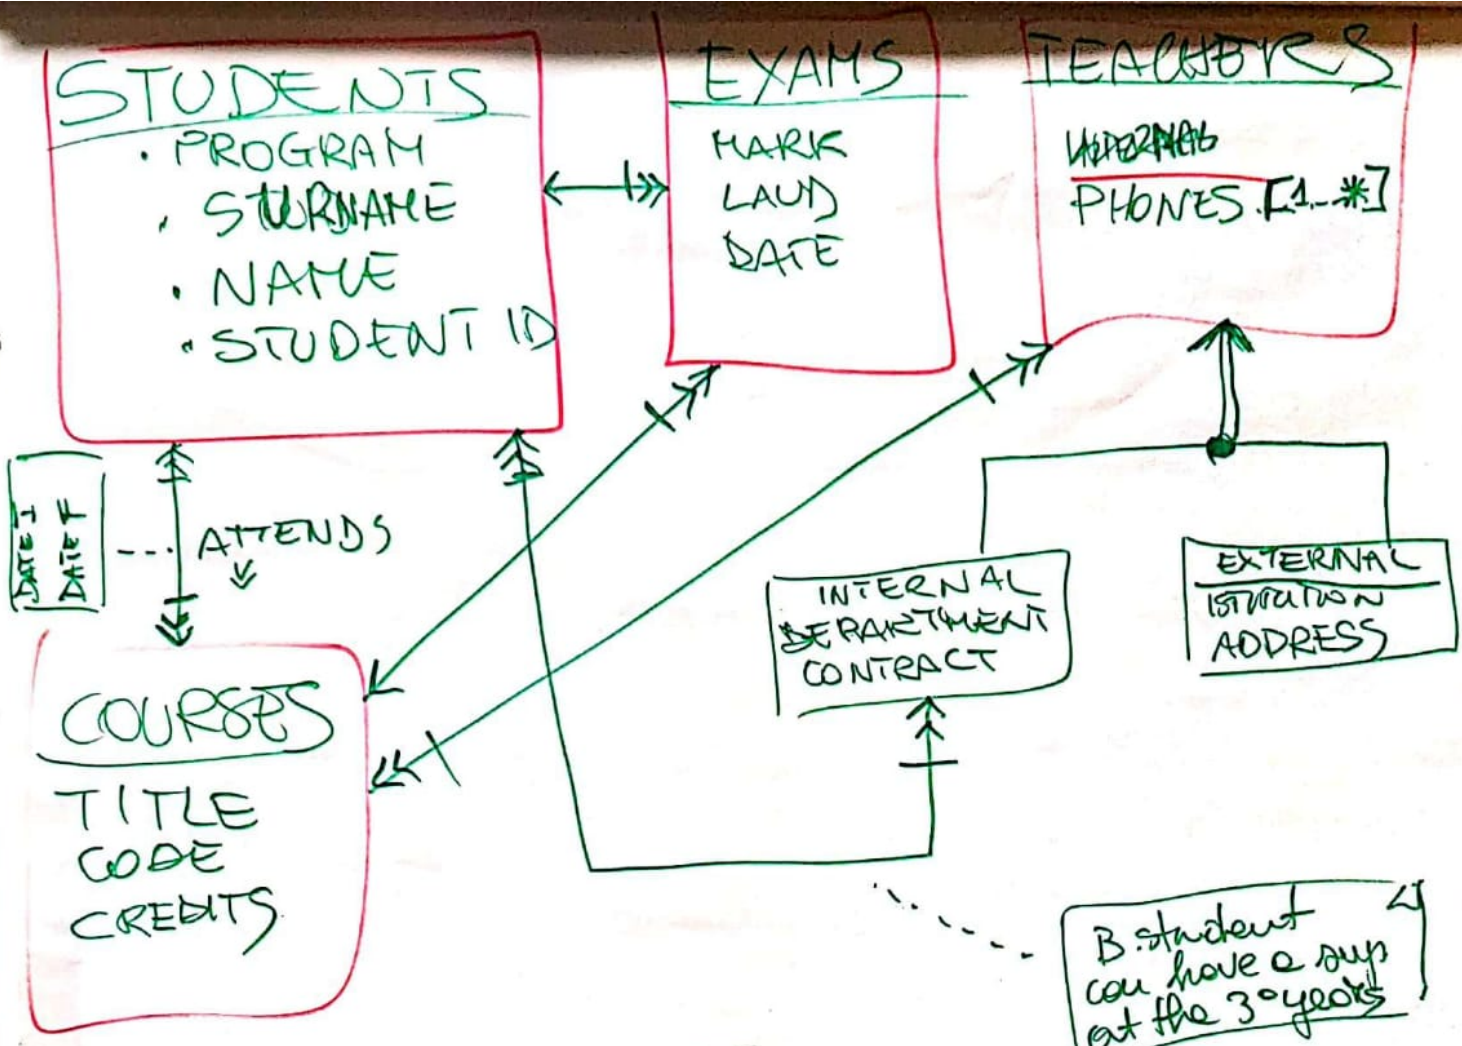 STUDENTS
. PROGRAM
. SURNAME
. NAME
. STUDENT ID
EXAMS
MARK
LAUD
DATE
TEACHERS
PHONES [1..*]
DATE I
DATE F
ATTENDS
COURSES
TITLE
CODE
CREDITS
INTERNAL
DEPARTMENT
CONTRACT
EXTERNAL
ISTITUTION
ADDRESS
B. student
can have a sup
at the 3° years